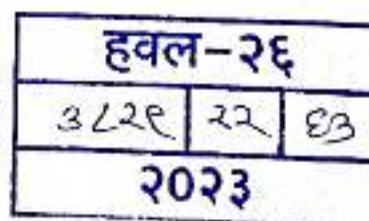 हवल-२६
३८२९ २२ ६३
२०२३